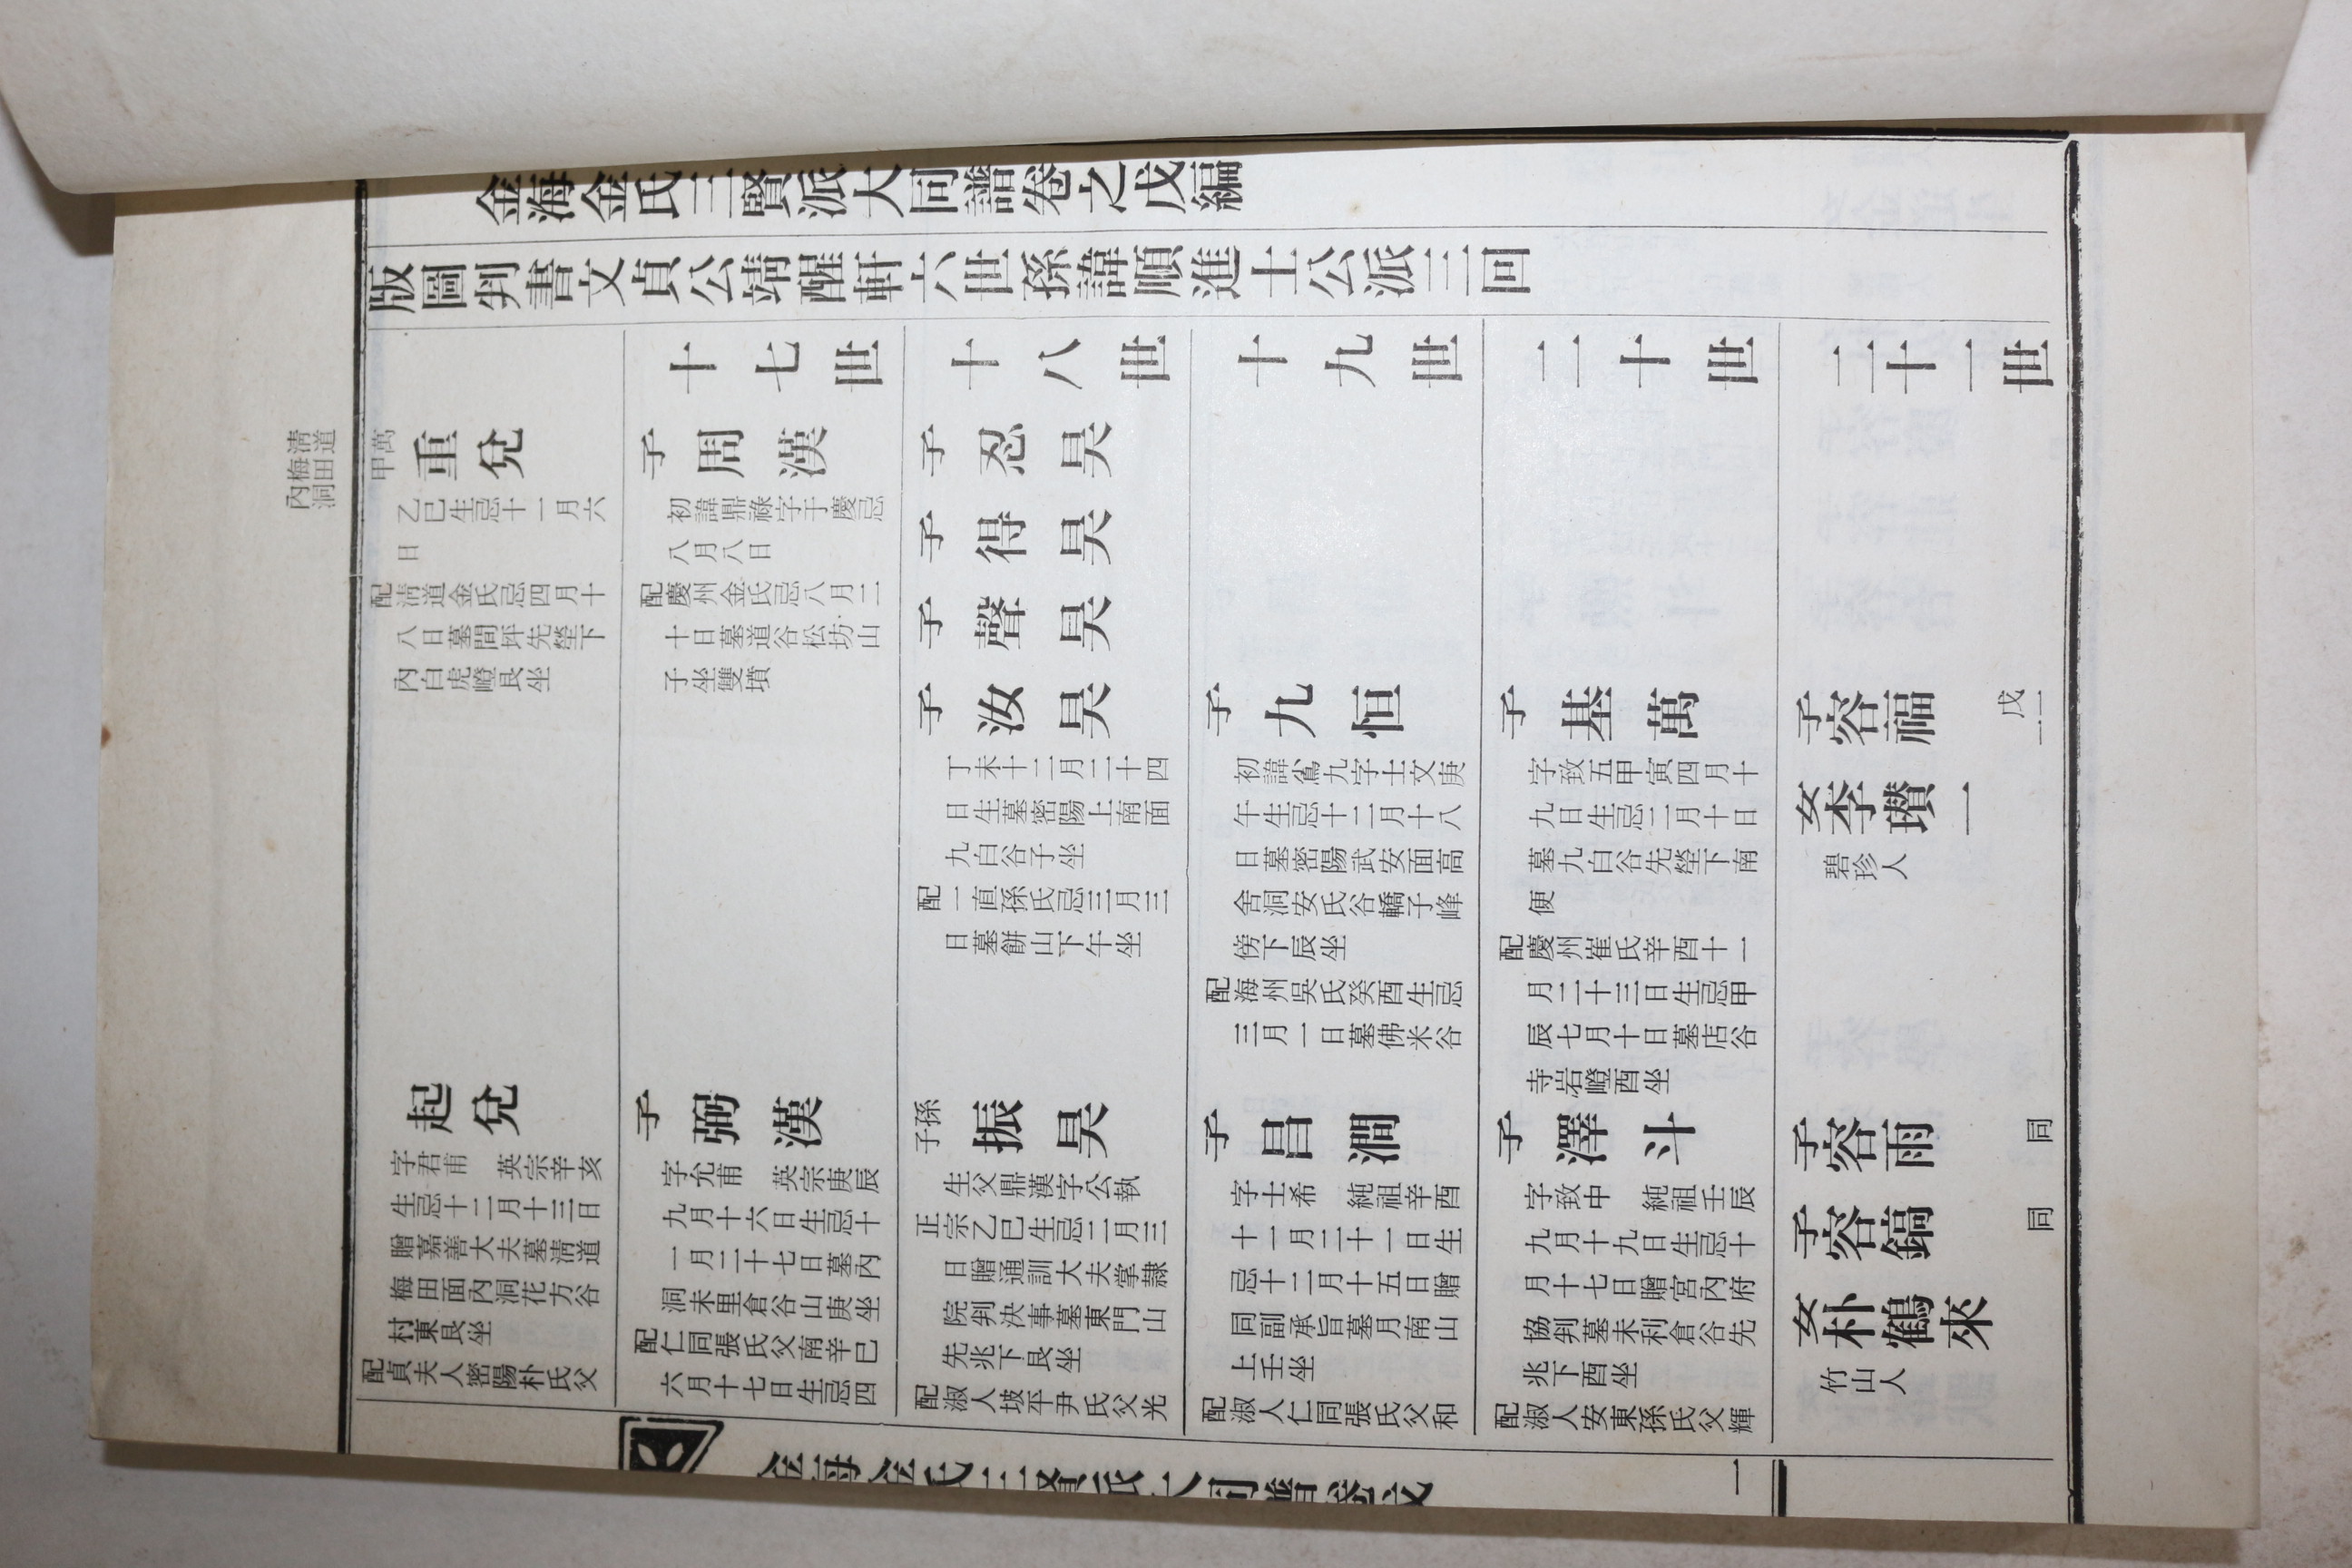 金海金氏三賢派大同譜卷之戊編
版圖判書文貞公靖醒軒六世孫諱順進士公派三回
淸道
梅田
內洞
萬
甲
重兌
乙巳生忌十一月六
日
配淸道金氏忌四月十
八日墓間坪先塋下
內白虎嶝艮坐
起兌
字君甫 英宗辛亥
生忌十二月十三日
贈嘉善大夫墓淸道
梅田面內洞花方谷
村東艮坐
配貞夫人密陽朴氏父
十七世
子周漢
初諱鼎祿字于慶忌
八月八日
配慶州金氏忌八月二
十日墓道谷松坊山
子坐雙墳
子弼漢
字允甫 英宗庚辰
九月十六日生忌十
一月二十七日墓內
洞未里倉谷山庚坐
配仁同張氏父南辛巳
六月十七日生忌四
十八世
子忍昊
子得昊
子聲昊
子汝昊
丁未十二月二十四
日生墓密陽上南面
九白谷子坐
配一直孫氏忌三月三
日墓餠山下午坐
孫
子
振昊
生父鼎漢字公執
正宗乙巳生忌二月三
日贈通訓大夫掌隷
院判决事墓東門山
先兆下艮坐
配淑人坡平尹氏父光
十九世
子九恒
初諱鴬九字士文庚
午生忌十二月十八
日墓密陽武安面高
舍洞安氏谷轎子峰
傍下辰坐
配海州吳氏癸酉生忌
三月一日墓佛米谷
子昌澗
字士希 純祖辛酉
十一月二十一日生
忌十二月十五日贈
同副承旨墓月南山
上壬坐
配淑人仁同張氏父和
二十世
子基萬
字致五甲寅四月十
九日生忌二月十日
墓九白谷先塋下南
便
配慶州崔氏辛酉十一
月二十三日生忌甲
辰七月十日墓店谷
寺岩嶝酉坐
子澤斗
字致中 純祖壬辰
九月十九日生忌十
月十七日贈宮內府
協判墓未利倉谷先
兆下酉坐
配淑人安東孫氏父輝
二十一世
子容福
戊一
一
女李瓚一
碧珍人
子容雨
同
子容鎬
同
女朴鶴來
竹山人
金海金氏三賢派大同譜卷戊
一